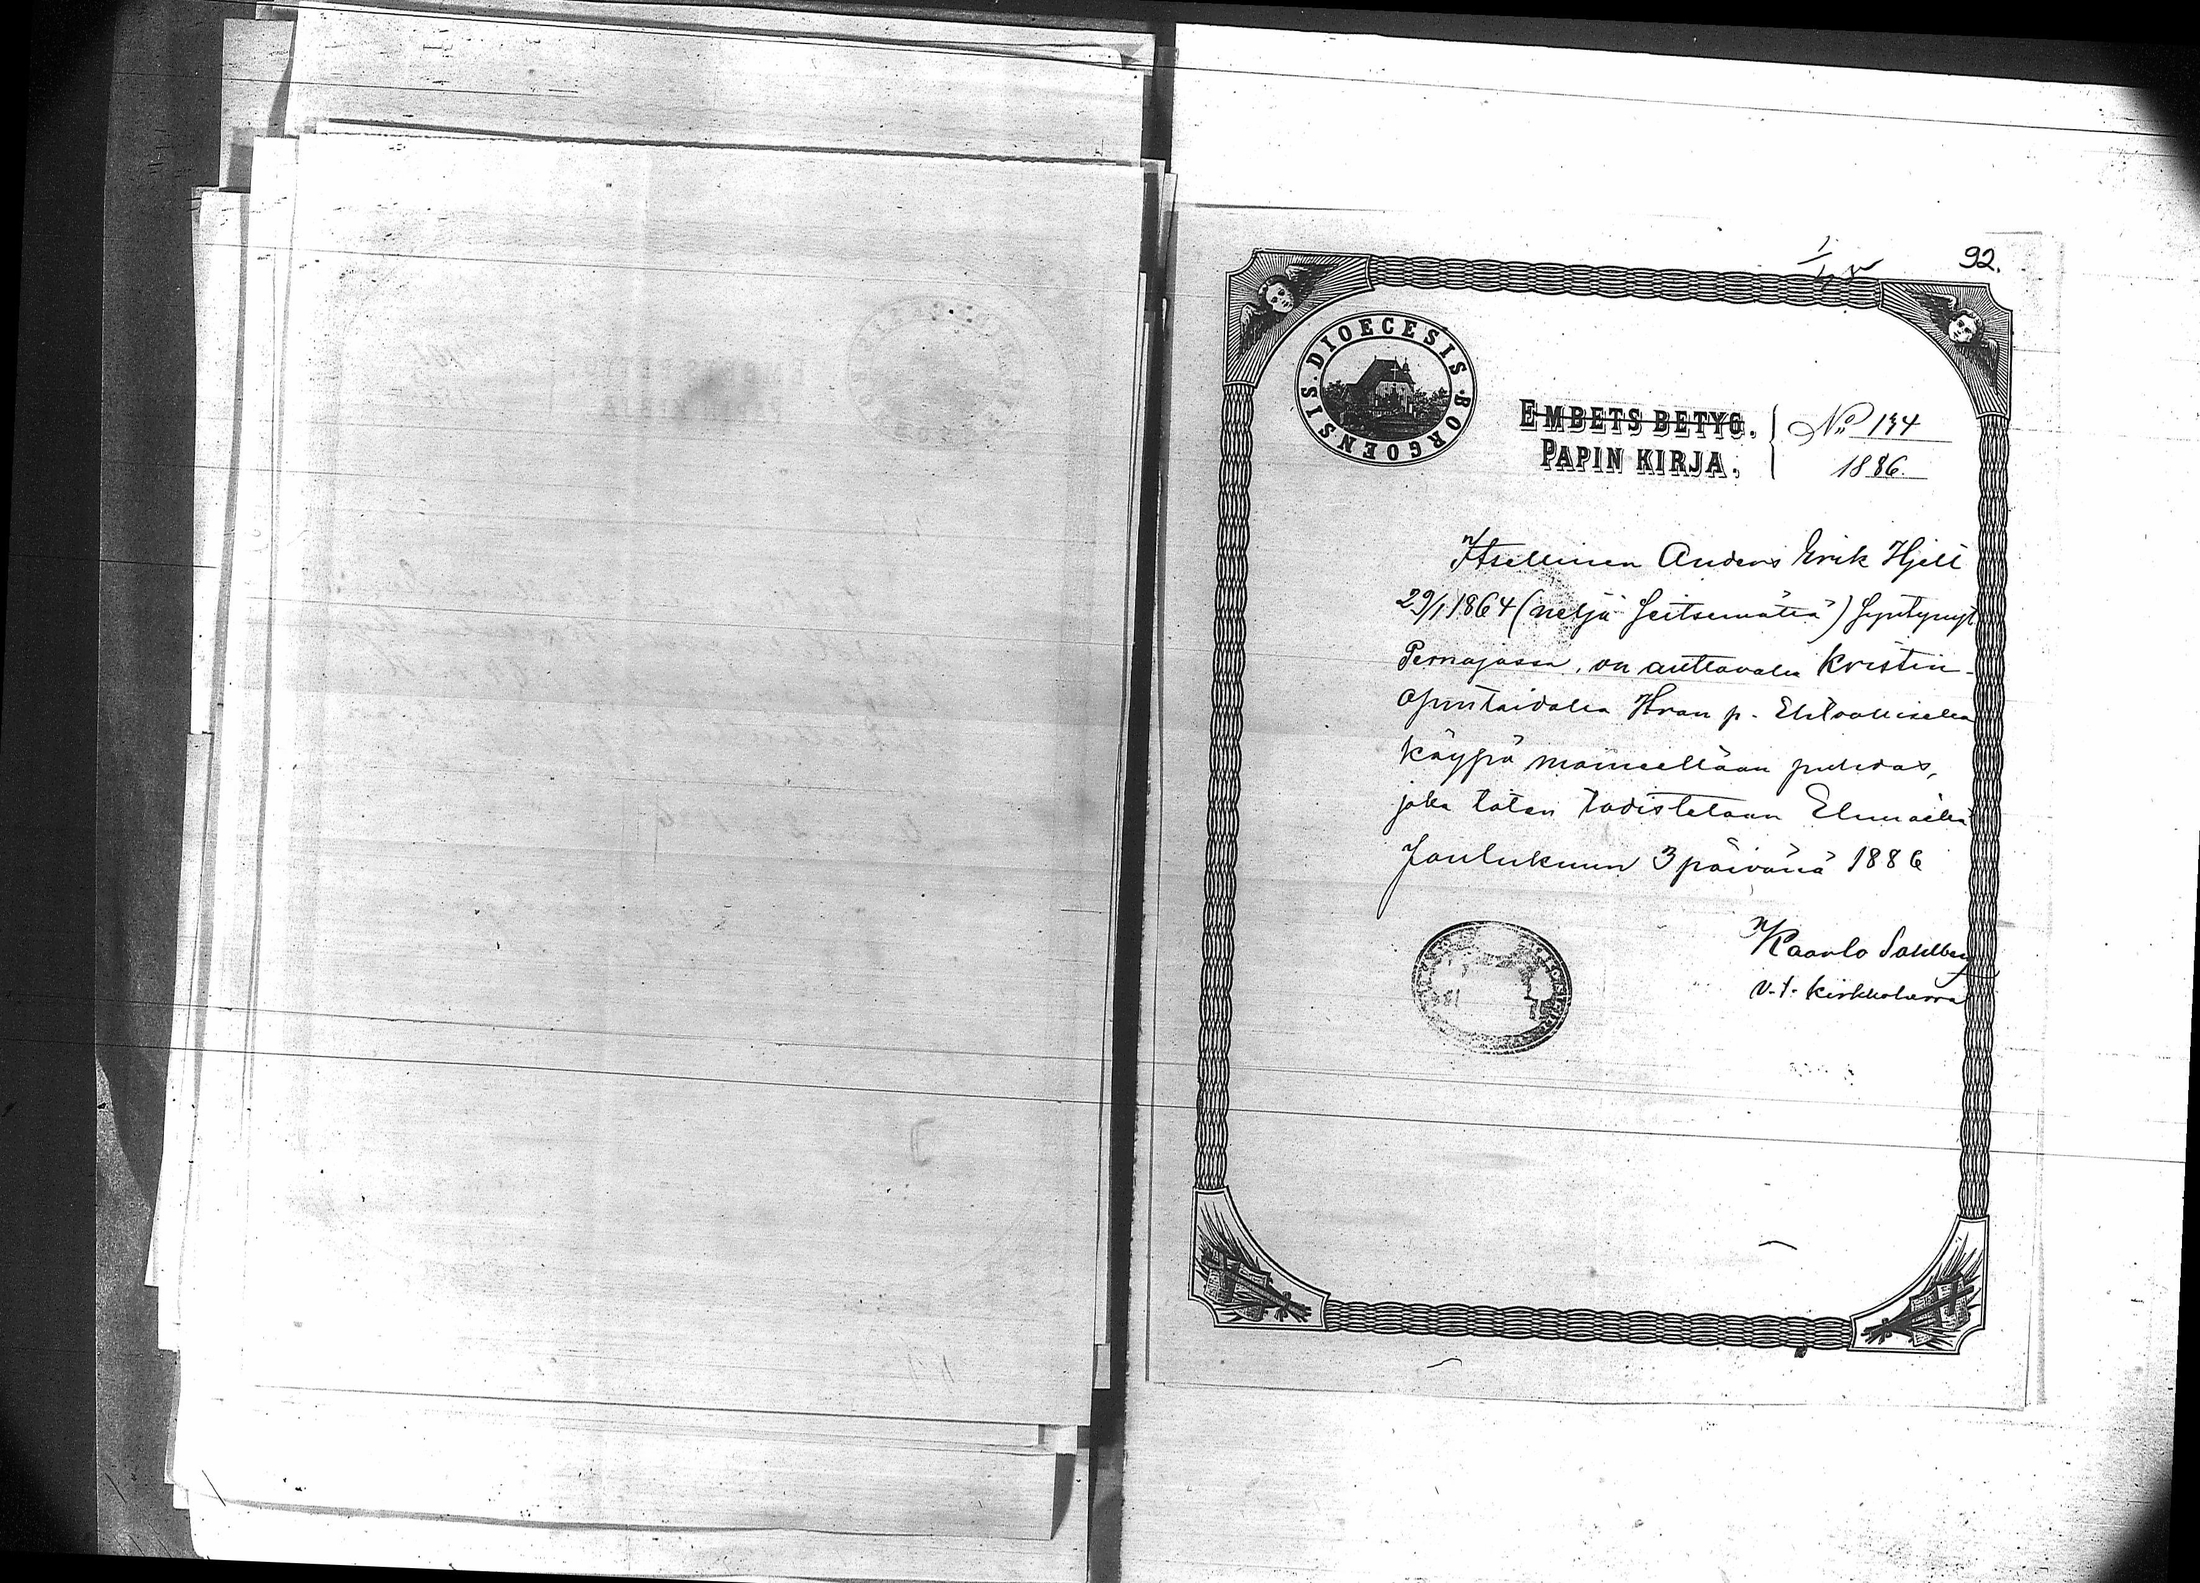 92.
DIOECESIS BORGOENSIS
EMBETS BETYG.
PAPIN KIRJA.
No 134
1886.
Itsellinen Anders Erik Hjelt
29/1 1864 (neljä seitsemättä) syntynyt
Pernajassa, on auttavalla kristin-
opintaidolla Hran p. Ehtoollisella
käypä maineeltaan puhdas,
joka täten todistetaan Elimäellä
Joulukuun 3 päivänä 1886
Kaarlo Sahlberg
v.t. kirkkoherra